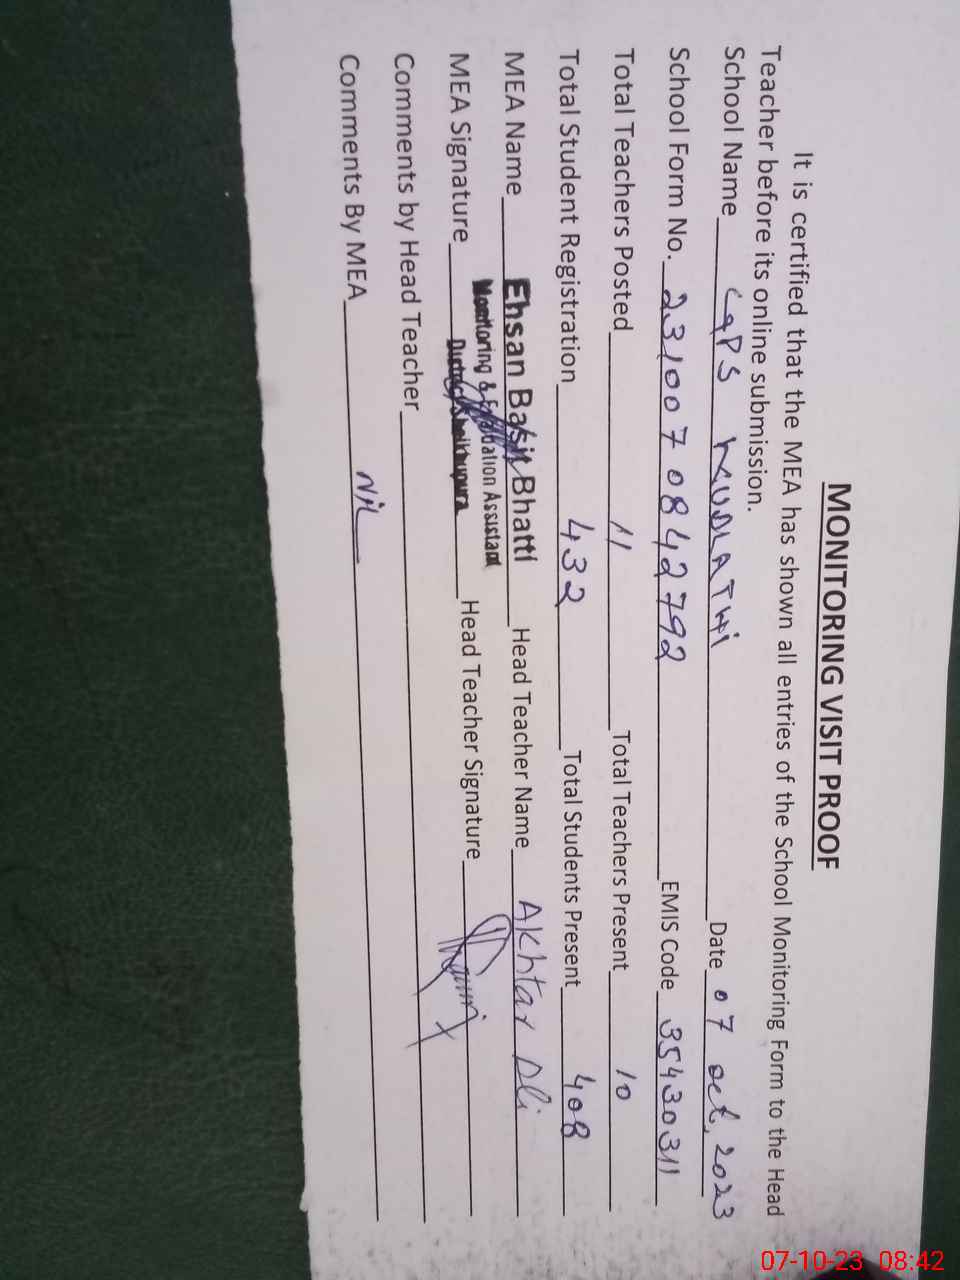 MONITORING VISIT PROOF
It is certified that the MEA has shown all entries of the School Monitoring Form to the Head
Teacher before its online submission.
School Name GPS Date 07 Oct, 2023
School Form No. 2310070842792 EMIS Code 35430311
Total Teachers Posted 11 Total Teachers Present 10
Total Student Registration 432 Total Students Present 408
MEA Name Ehsan Basit Bhatti Head Teacher Name Akhtar Ali
Monitoring & Evaluation Assistant
MEA Signature District Sheikhupura Head Teacher Signature
Comments by Head Teacher
Comments By MEA NIL
07-10-23 08:42